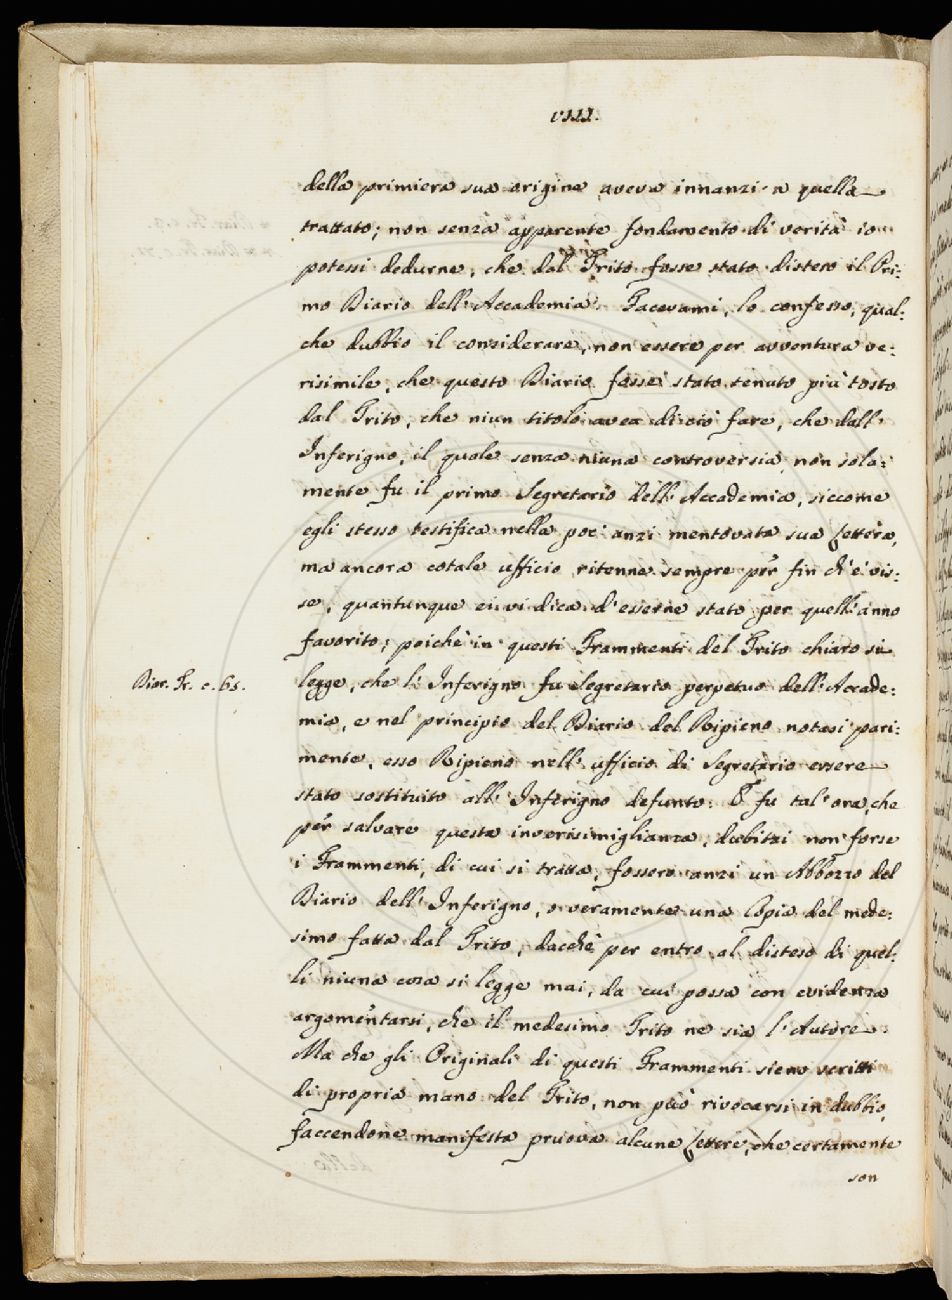 VIII.
della primiera sua origine aveva innanzi a quella
trattato; non senza apparente fondamento di verità io
potessi dedurne, che dal Trito fosse stato disteso il Pri:
mo Diario dell' Accademia. Facevami, lo confesso, qual:
che dubbio il considerare, non essere per avventura ve:
risimile, che questo Diario fosse stato tenuto più tosto
dal Trito, che niun titolo avea di ciò fare, che dall'
Inferigno, il quale senza niuna controversia non sola:
mente fu il primo Segretario dell' Accademia, siccome
egli stesso testifica nella poc' anzi mentovata sua Lettera,
ma ancora cotale ufficio ritenne sempre per fin ch' e' vis:
se, quantunque ei vi dica d' esserne stato per quell' anno
favorito; poichè in questi Frammenti del Trito chiaro si
Diar. Tr. c. 65.
legge, che l' Inferigno fu Segretario perpetuo dell' Accade:
mia, e nel principio del Diario del Ripieno notasi pari:
mente, esso Ripieno nell' ufficio di Segretario essere
stato sostituito all' Inferigno defunto: E fu tal' ora, che
per salvare questa inverisimiglianza, dubitai non forse
i Frammenti, di cui si tratta, fossero anzi un Abbozzo del
Diario dell' Inferigno, o veramente una Copia del mede:
simo fatta dal Trito, dacchè per entro al disteso di quel:
li niuna cosa si legge mai, da cui possa con evidenza
argomentarsi, che il medesimo Trito ne sia l' Autore.
Ma che gli Originali di questi Frammenti sieno scritti
di propria mano del Trito, non può rivocarsi in dubbio,
faccendone manifesta pruova alcune Lettere, che certamente
son